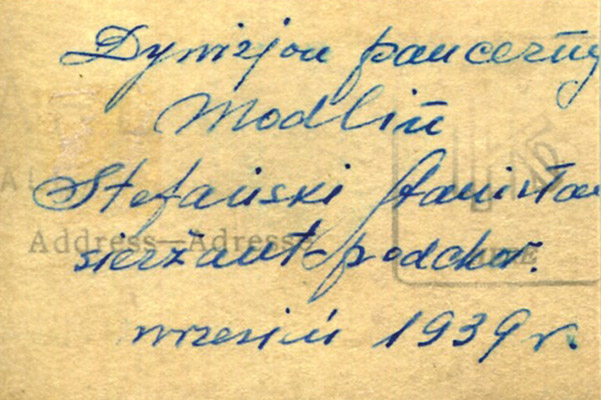 Dywizjon pancerny
Modlin
Stefański Stanisław
Address—Adresse
sierżant podchor.
wrzesień 1939 r.